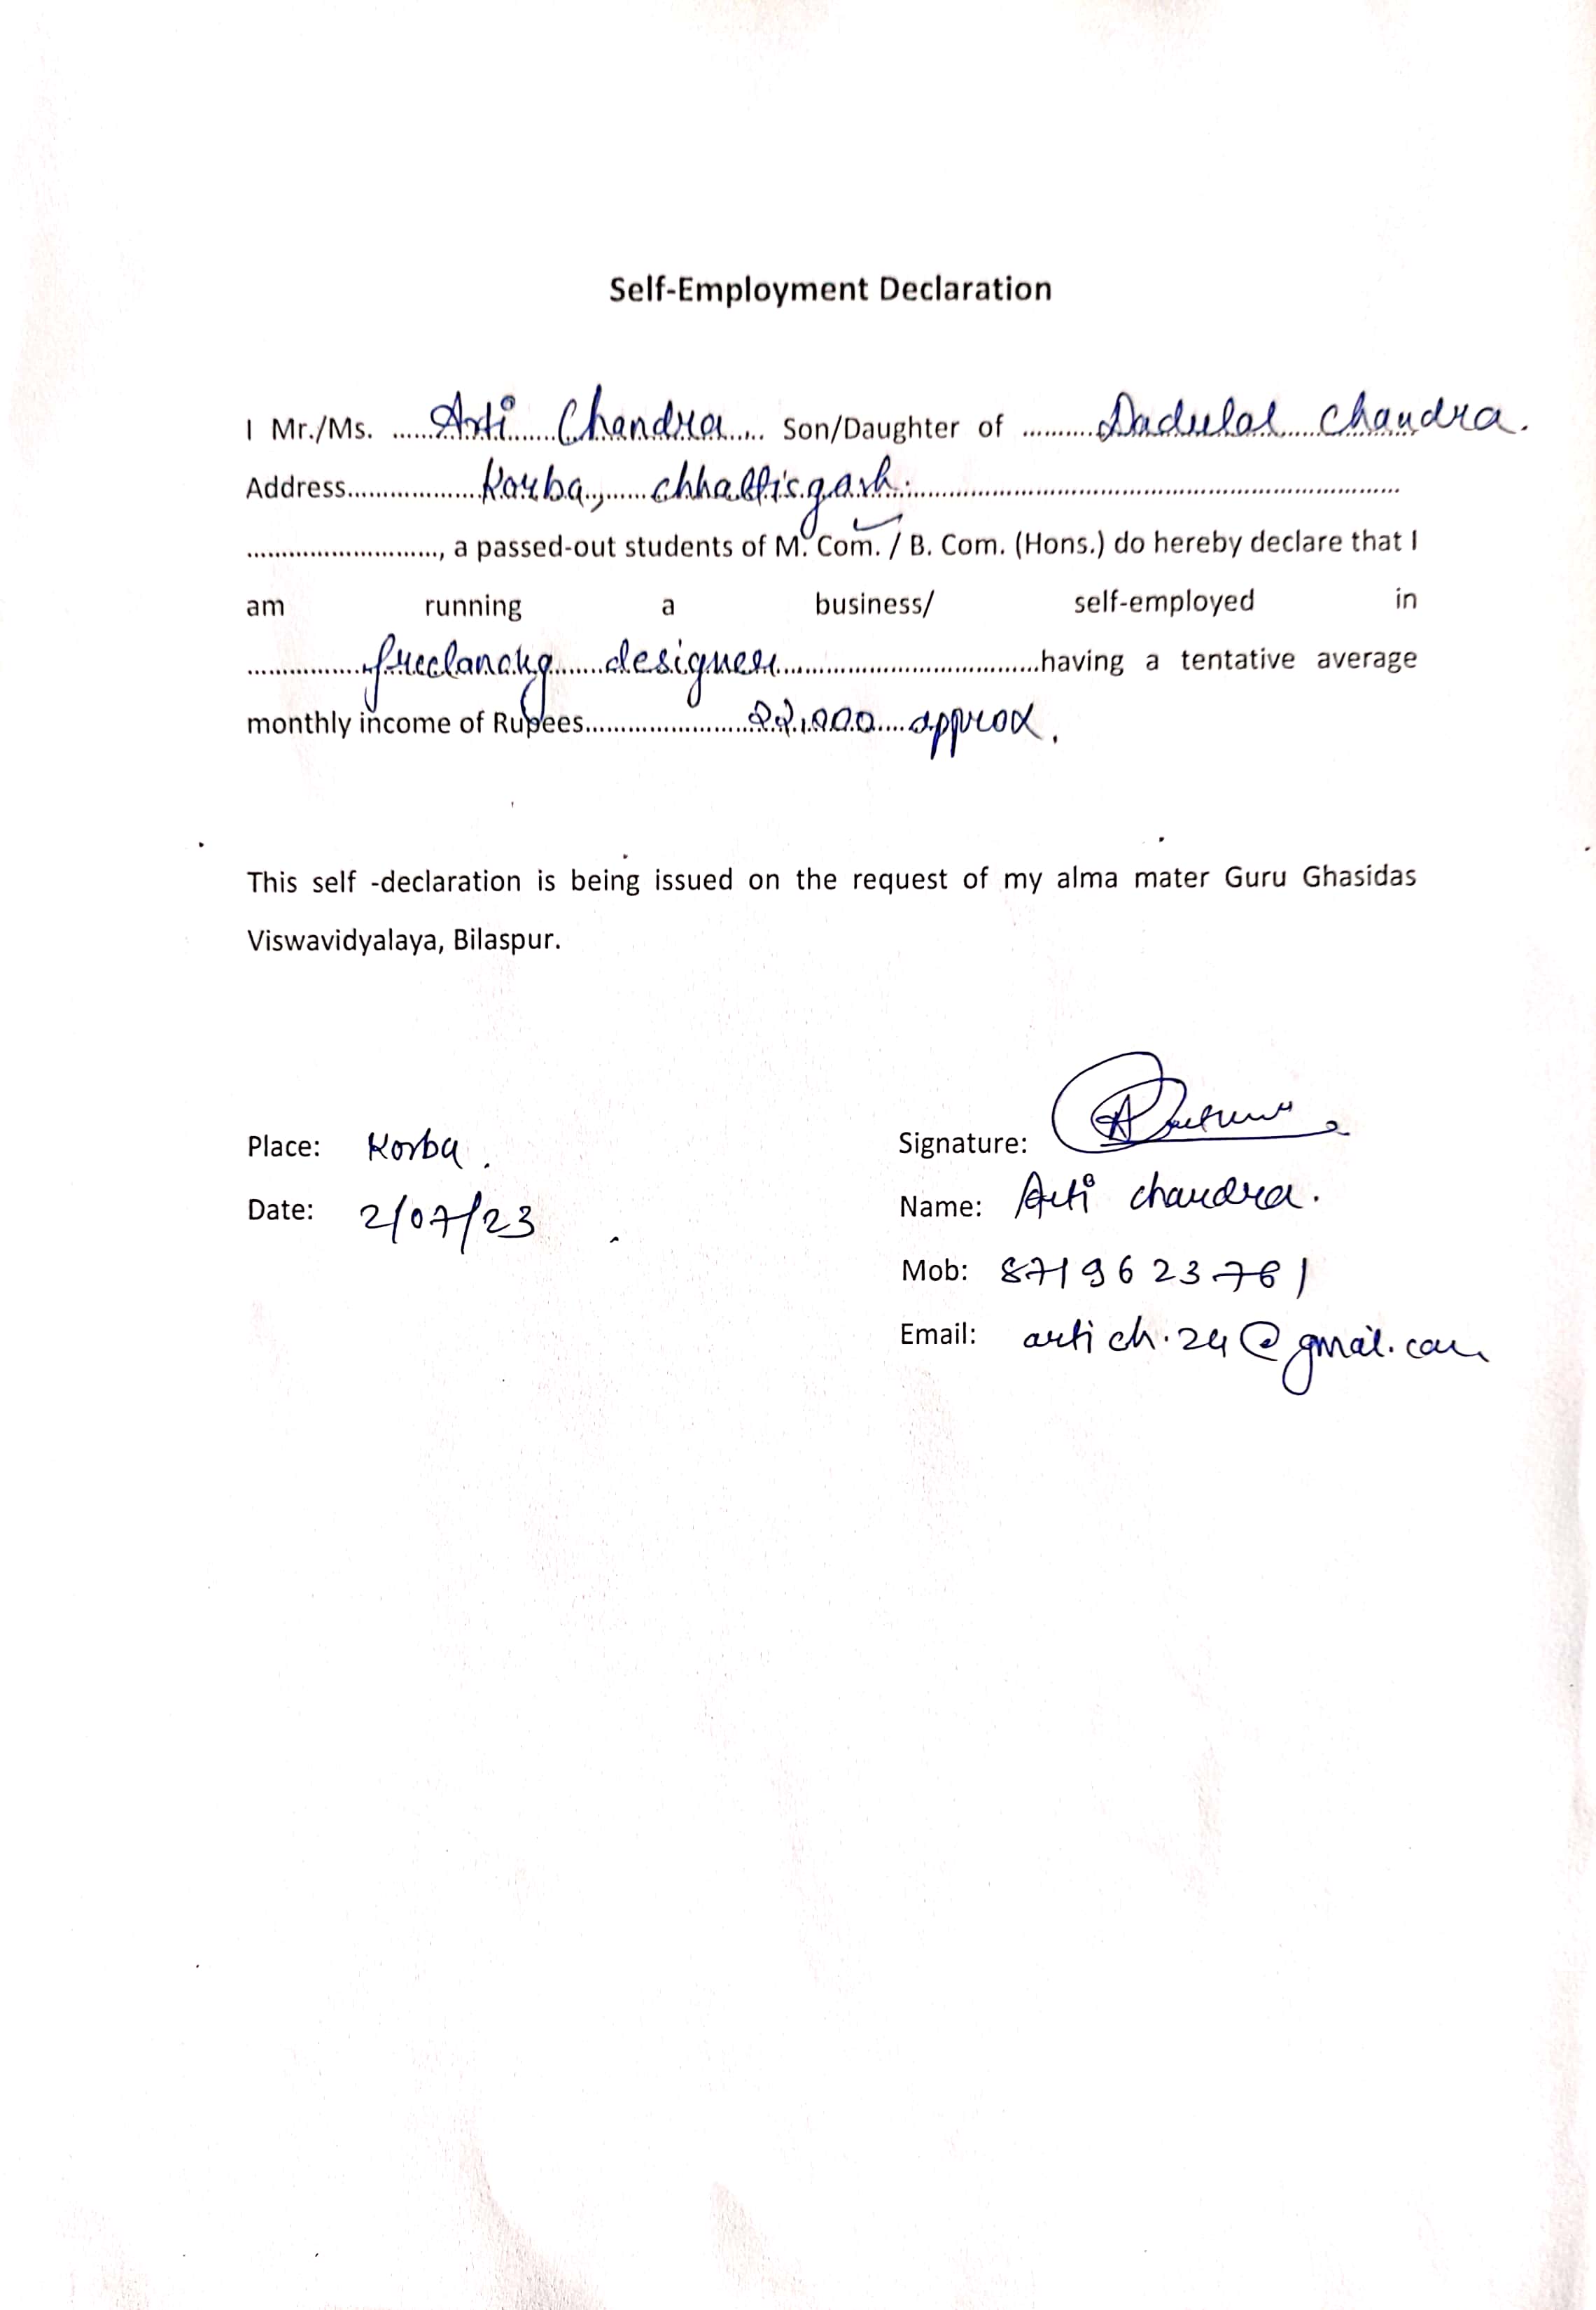 Self-Employment Declaration
I Mr./Ms. ......Arti......Chandra.... Son/Daughter of ..........Dadulal.....Chandra.
Address...................Korba,......chhattisgarh.......................................................................
..........................., a passed-out students of M. Com. / B. Com. (Hons.) do hereby declare that I
am running a business/ self-employed in
................freelancing.......designer.....................................having a tentative average
monthly income of Rupees.......................22,000....approx.
This self -declaration is being issued on the request of my alma mater Guru Ghasidas
Viswavidyalaya, Bilaspur.
Place: Korba.
Date: 2/07/23
Signature:
Name: Arti chandra.
Mob: 8719623761
Email: artich.24@gmail.com